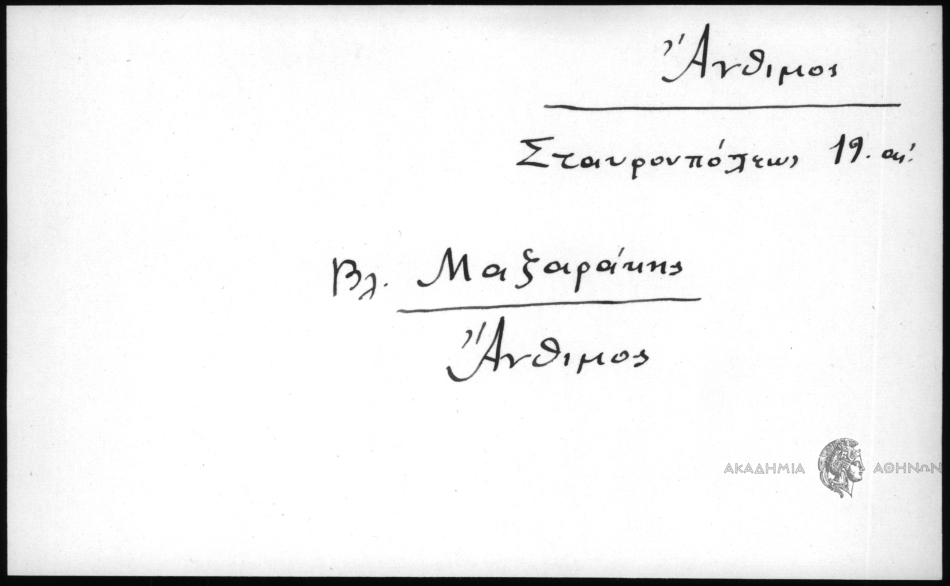 Ἄνθιμος
Σταυρουπόλεως 19. αἰ.
Βλ. Μαζαράκης
Ἄνθιμος
ΑΚΑΔΗΜΙΑ ΑΘΗΝΩΝ